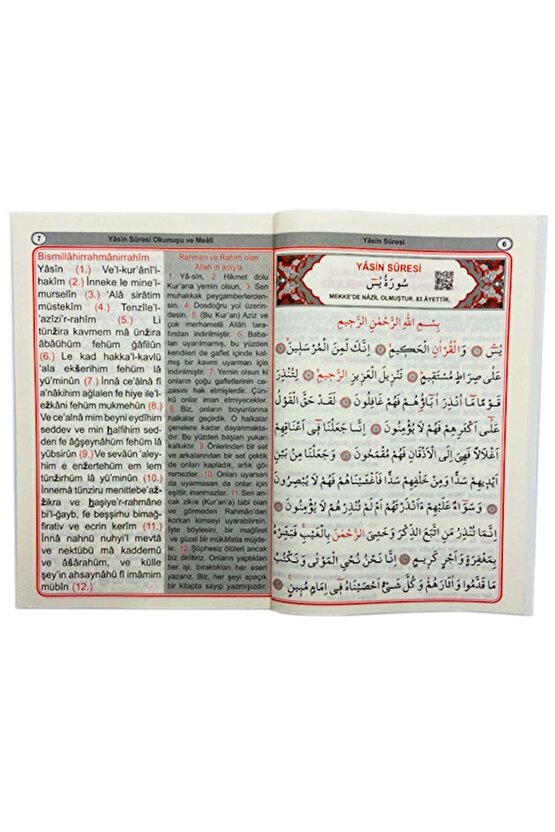 7
Yâsin Sûresi Okunuşu ve Meâli
Bismillâhirrahmânirrahîm
Yâsîn (1.) Ve'l-kur'âni'l-
hakîm (2.) İnneke le mine'l-
murselîn (3.) 'Alâ sirâtim
müstekîm (4.) Tenzîle'l-
'azîzi'r-rahîm (5.) Li
tünžira kavmem mâ ünžira
âbâühüm fehüm ğâfilûn
(6.) Le kad hakka'l-kavlü
'ala ekšerihim fehüm lâ
yü'minûn (7.) İnnâ ce'alnâ fî
a'nâkihim ağlalen fe hiye ile'l-
ežkâni fehüm mukmehûn (8.)
Ve ce'alnâ mim beyni eydîhim
seddev ve min halfihim sed-
den fe ağşeynâhüm fehüm lâ
yübsirûn (9.) Ve sevâün 'aley-
him e enžertehüm em lem
tünžirhüm lâ yü'minûn (10.)
İnnemâ tünziru menittebe'až-
žikra ve haşiye'r-rahmâne
bi'l-ğayb, fe beşşirhu bimağ-
firativ ve ecrin kerîm (11.)
İnnâ nahnü nuhyi'l mevtâ
ve nektübü mâ kaddemû
ve âšârahüm, ve külle
şey'in ahsaynâhü fî imâmim
mübîn (12.)
Rahman ve Rahim olan
Allah'ın adıyla
1. Yâ-sîn, 2. Hikmet dolu
Kur'ana yemin olsun, 3. Sen
muhakkak peygamberlerden-
sin. 4. Dosdoğru yol üzerin-
desin. 5. (Bu Kur'an) Aziz ve
çok merhametli Allah tara-
fından indirilmiştir. 6. Baba-
ları uyarılmamış, bu yüzden
kendileri de gaflet içinde kal-
mış bir kavmi uyarman için
indirilmiştir. 7. Yemin olsun ki
onların çoğu gafletlerinin ce-
zasını hak etmişlerdir. Çün-
kü onlar iman etmiyecekler.
8. Biz, onların boyunlarına
halkalar geçirdik. O halkalar
çenelere kadar dayanmakta-
dır. Bu yüzden başları yukarı
kalkıktır. 9. Önlerinden bir set
ve arkalarından bir set çektik
de onları kapladık, artık gö-
remezler. 10. Onları uyarsan
da uyarmasan da onlar için
eşittir, inanmazlar. 11. Sen an-
cak zikre (Kur'an'a) tabi olan
ve görmeden Rahmân'dan
korkan kimseyi uyarabilirsin.
İşte böylesini, bir mağfiret
ve güzel bir mükâfatla müjde-
le. 12. Şüphesiz ölüleri ancak
biz diriltiriz. Onların yaptıkları
her işi, bıraktıkları her eseri
yazarız. Biz, her şeyi apaçık
bir kitapta sayıp yazmışızdır.
Yâsin Sûresi
6
YÂSİN SÛRESİ
سُورَةُ يٰسٓ
MEKKE'DE NÂZİL OLMUŞTUR. 83 ÂYETTİR.
بِسْمِ اللهِ الرَّحْمٰنِ الرَّحِيمِ
يٰسٓ ۞ وَالْقُرْاٰنِ الْحَكِيمِ ۞ اِنَّكَ لَمِنَ الْمُرْسَلِينَ ۞
عَلٰى صِرَاطٍ مُسْتَقِيمٍ ۞ تَنْزِيلَ الْعَزِيزِ الرَّحِيمِ ۞ لِتُنْذِرَ
قَوْمًا مَا اُنْذِرَ اٰبَاؤُهُمْ فَهُمْ غَافِلُونَ ۞ لَقَدْ حَقَّ الْقَوْلُ
عَلٰى اَكْثَرِهِمْ فَهُمْ لَا يُؤْمِنُونَ ۞ اِنَّا جَعَلْنَا فِى اَعْنَاقِهِمْ
اَغْلَالًا فَهِىَ اِلَى الْاَذْقَانِ فَهُمْ مُقْمَحُونَ ۞ وَجَعَلْنَا مِنْ بَيْنِ
اَيْدِيهِمْ سَدًّا وَمِنْ خَلْفِهِمْ سَدًّا فَاَغْشَيْنَاهُمْ فَهُمْ لَا يُبْصِرُونَ
۞ وَسَوَاءٌ عَلَيْهِمْ ءَاَنْذَرْتَهُمْ اَمْ لَمْ تُنْذِرْهُمْ لَا يُؤْمِنُونَ ۞
اِنَّمَا تُنْذِرُ مَنِ اتَّبَعَ الذِّكْرَ وَخَشِىَ الرَّحْمٰنَ بِالْغَيْبِ فَبَشِّرْهُ
بِمَغْفِرَةٍ وَاَجْرٍ كَرِيمٍ ۞ اِنَّا نَحْنُ نُحْيِى الْمَوْتٰى وَنَكْتُبُ
مَا قَدَّمُوا وَاٰثَارَهُمْ وَكُلَّ شَىْءٍ اَحْصَيْنَاهُ فِى اِمَامٍ مُبِينٍ ۞